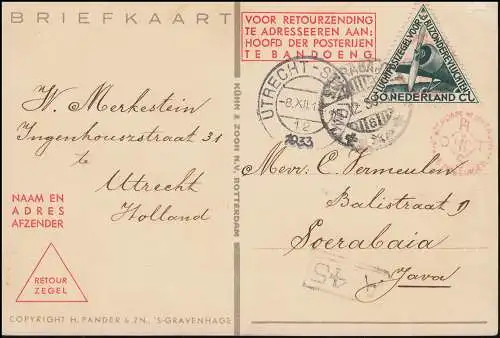 BRIEFKAART
VOOR RETOURZENDING
TE ADRESSEEREN AAN:
HOOFD DER POSTERIJEN
TE BANDOENG
LUCHTPOSTZEGEL VOOR
BIJZONDERE VLUCHTEN
30 NEDERLAND CT
UTRECHT-
8.XII
12
1933
W. Merkestein
Ingenhouszstraat 31
te
Utrecht
Holland
NAAM EN
ADRES
AFZENDER
RETOUR
ZEGEL
COPYRIGHT H. PANDER & ZN., 'S-GRAVENHAGE
KÜHN & ZOON N.V. ROTTERDAM
Mevr. C. Vermeulen
Balistraat 9
Soerabaia
Java
45